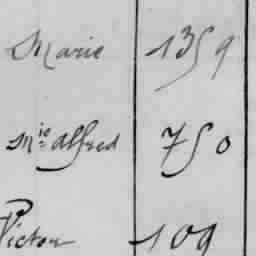 Marie 1359
Mie Alfred 750
Victor 109